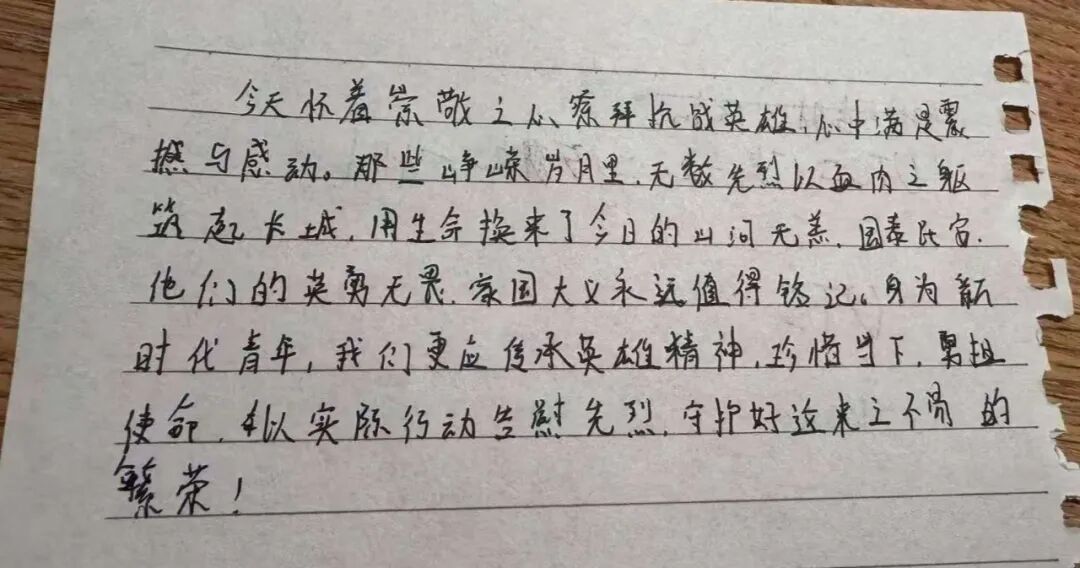 今天怀着崇敬之心祭拜抗战英雄，心中满是震
撼与感动。那些峥嵘岁月里，无数先烈以血肉之躯
筑起长城，用生命换来了今日的山河无恙，国泰民安.
他们的英勇无畏，家国大义永远值得铭记。身为新
时代青年，我们更应传承英雄精神，珍惜当下，勇担
使命，以实际行动告慰先烈，守护好这来之不易的
繁荣！